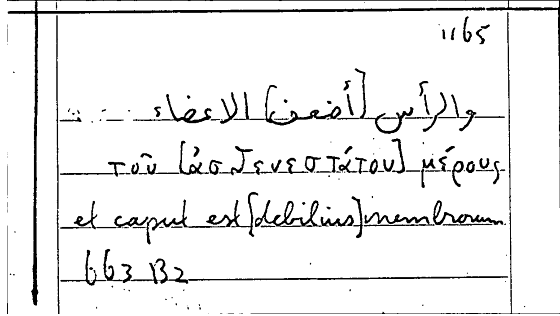 1165
والرأس [أضعف] الاعضاء
τοῦ [ἀσθενεστάτου] μέρους
et caput est [debilius] membrorum
663 B2